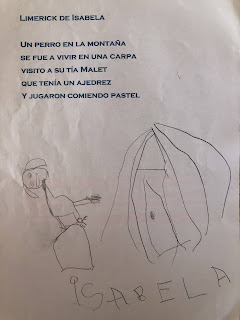 Limerick de Isabela
Un perro en la montaña
se fue a vivir en una carpa
visito a su tía Malet
que tenía un ajedrez
Y jugaron comiendo pastel
ISABELA